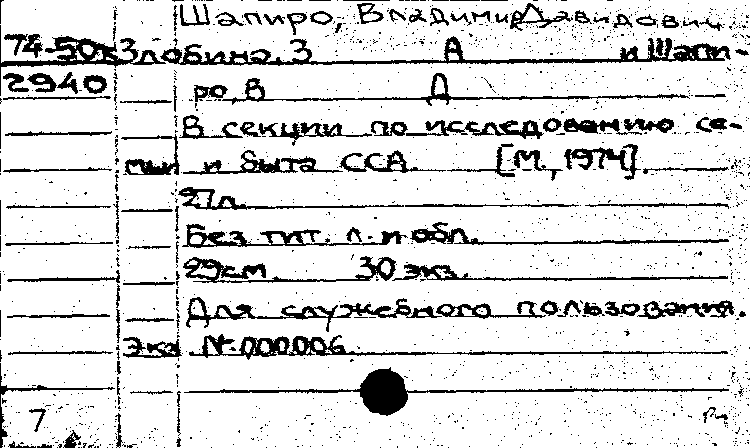 Шапиро, Владимир Давидович
74-50к Злобина, З А и Шапи-
2940 ро, В Д
В секции по исследованию се-
мьи и быта ССА. [М., 1974].
27л.
Без тит. л. и обл.
29см. 30 экз.
Для служебного пользования.
Экз. №000006.
7